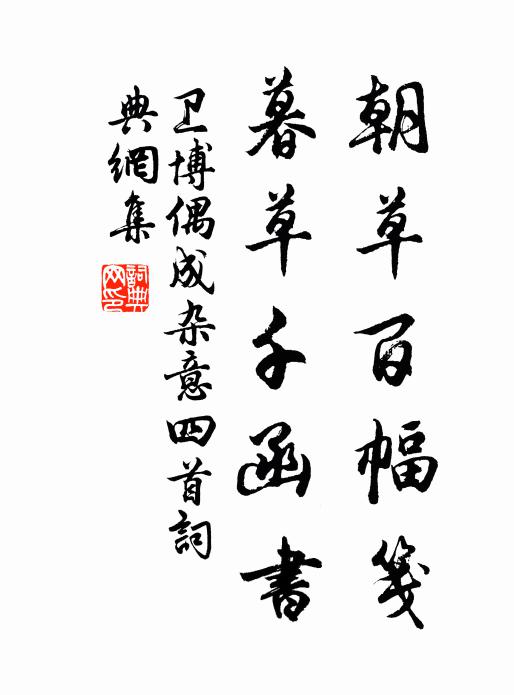 朝草百幅笺
暮草千函書
卫博偶成杂意四首詞
典網集
詞典網印